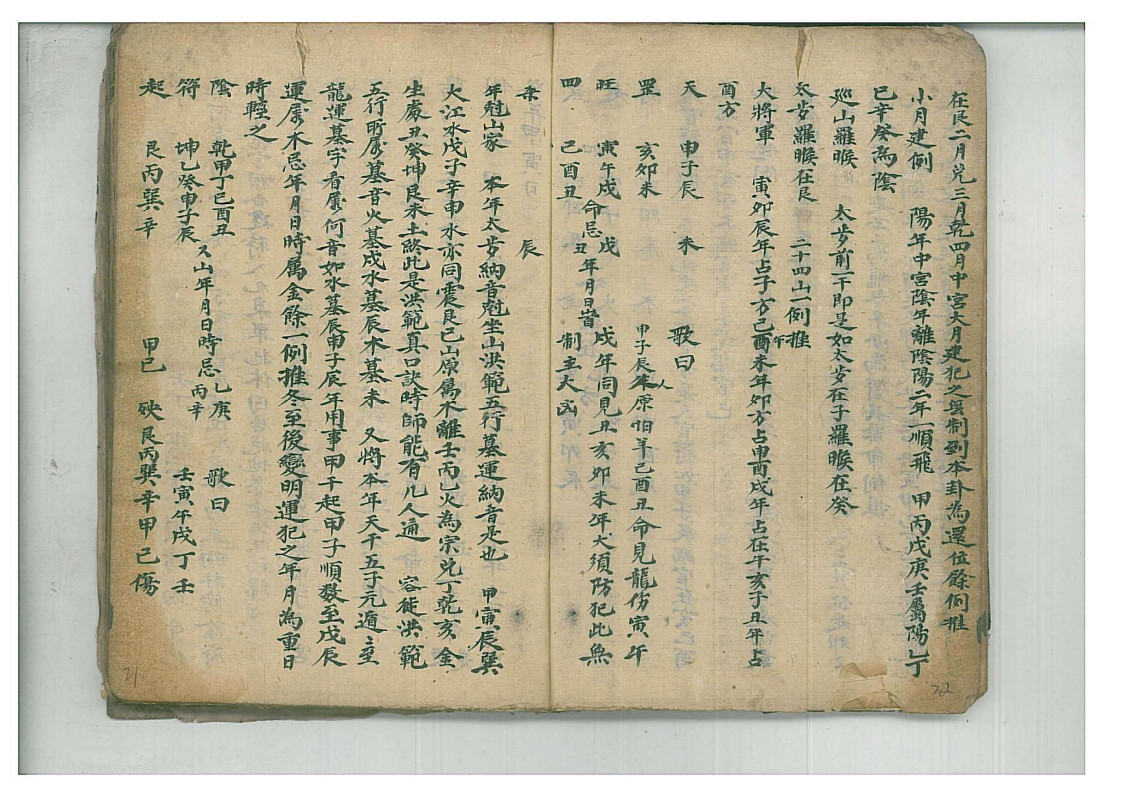 在艮二月兌三月乾四月中宮大月建犯之無制到本卦為還位餘例推
小月建例 陽年中宮陰年離陰陽二年一順飛 甲丙戊庚壬屬陽乙丁
巳辛癸為陰
巡山羅睺 太歩前一干即是如太歩在子羅睺在癸
太歩羅睺在艮 二十四山一例推
大將軍 寅卯辰年占子方己午未年卯方占申酉戌年占在午亥子丑年占
酉方
天 申子辰 未 歌曰
罡 亥卯未 申子辰人原怕羊己酉丑命見龍傍寅午
旺 寅午戌 命忌 戌 戌年同見丑亥卯未年犬須防犯此無
四 己酉丑 丑 年月日時 制主大凶
柰 辰
年尅山家 本年太歩納音尅坐山洪範五行墓運納音是也 甲寅辰巽
大江水戊子辛申水亦同震艮巳山原屬木離壬丙乙火為宗兌丁乾亥金
坐處丑癸坤艮未土終此是洪範真口訣時師能有几人通 容徒洪範
五行所屬墓音火墓戌水墓辰木墓未 又將本年天干五子元遁〻至
龍運墓字看屬何音如水墓辰申子辰年用事甲千起甲子順数至戊辰
運屬木忌年月日時屬金餘一例推冬至後變明運犯之年月為重日
時輕之
陰 乾甲丁巳酉丑 乙庚 歌曰
符 坤乙癸申子辰 又山年月日時忌 丙辛 壬寅午戌丁壬
起 艮丙巽辛 甲己 殃艮丙巽辛甲己傷
21
22